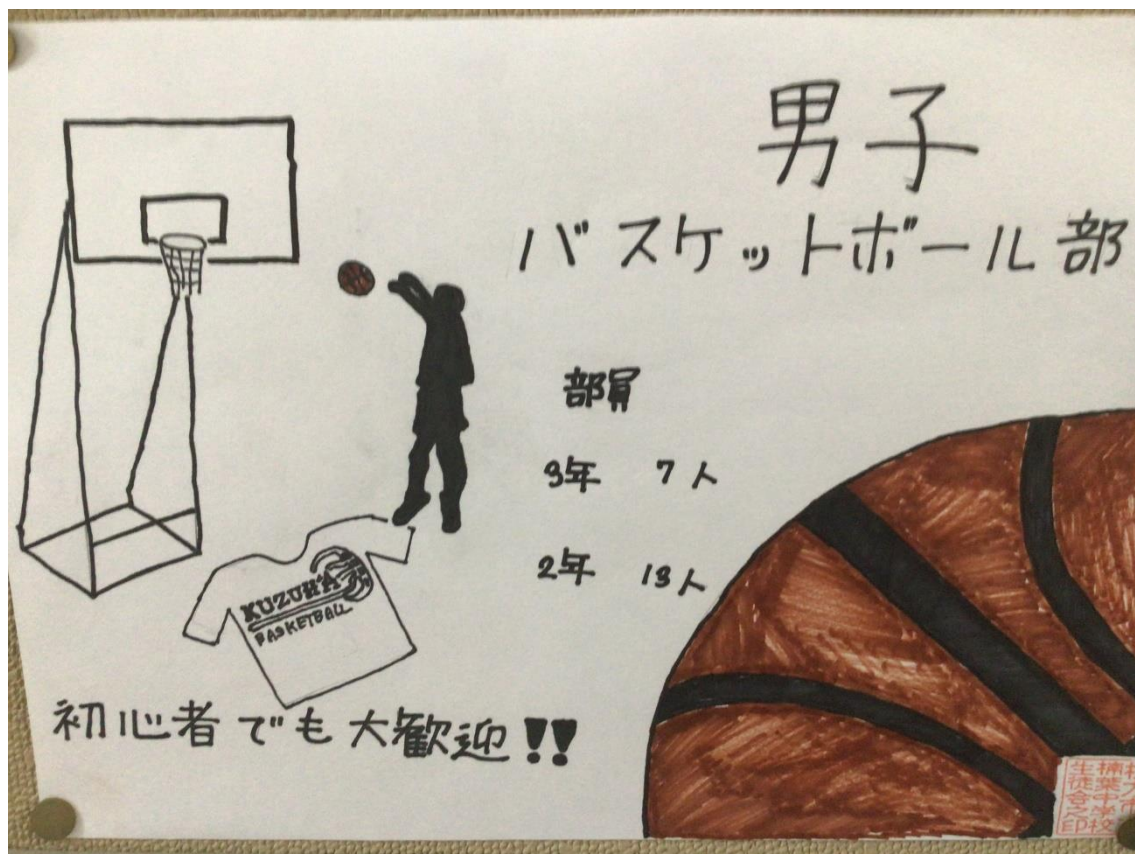 男子
バスケットボール部
部員
3年 7人
2年 13人
KUZUHA
BASKETBALL
初心者でも大歓迎!!
楠葉中学校
生徒会之印